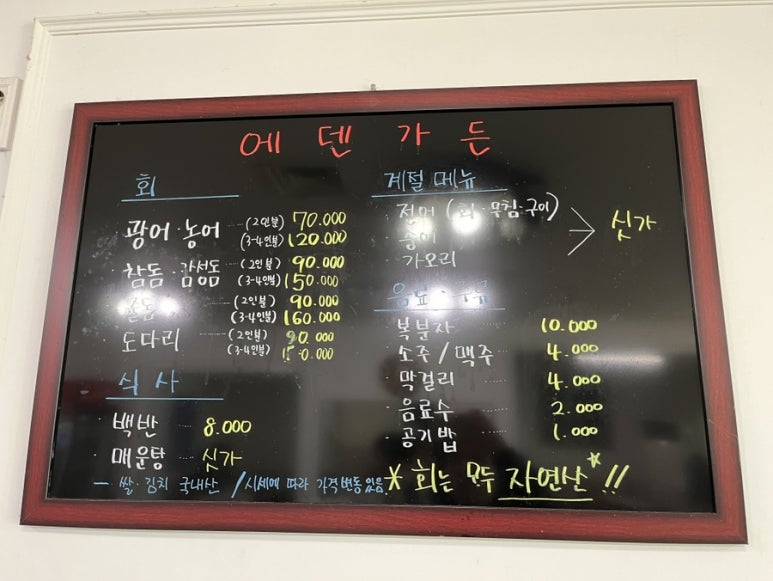 에덴가든
회
광어·농어 (2인분) 70.000
(3-4인분) 120.000
참돔·감성돔 (2인분) 90.000
(3-4인분) 150.000
(2인분) 90.000
(3-4인분) 160.000
도다리 (2인분) 90.000
(3-4인분)
식사
백반 8.000
매운탕 싯가
- 쌀·김치 국내산 / 시세에 따라 가격변동있음
계절 메뉴
전어 (회·무침·구이)
숭어
가오리
싯가
복분자 10.000
소주 / 맥주 4.000
막걸리 4.000
음료수 2.000
공기밥 1.000
* 회는 모두 자연산* !!